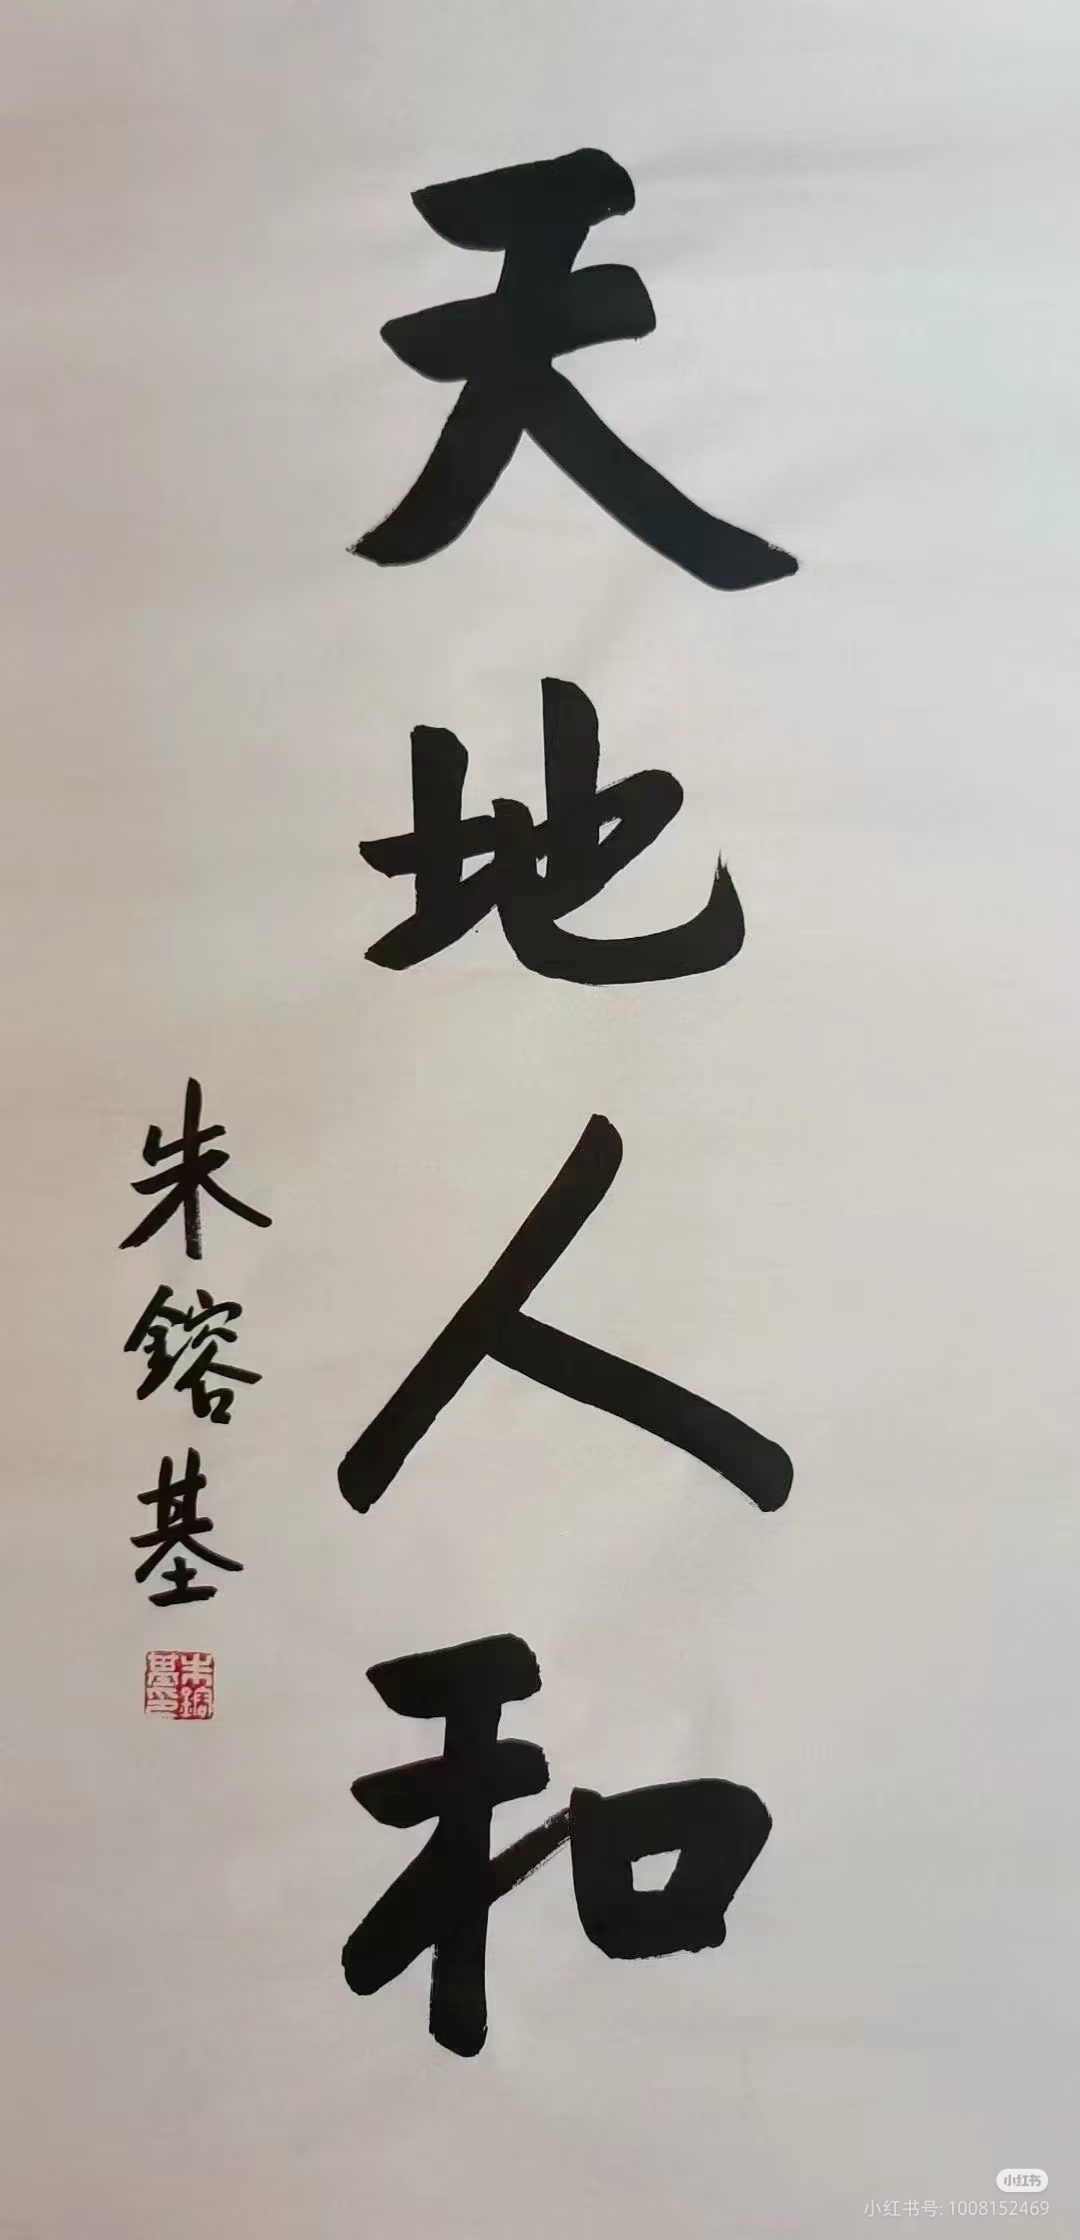 天地人和
朱鎔基
朱鎔基印
小红书
小红书号: 1008152469